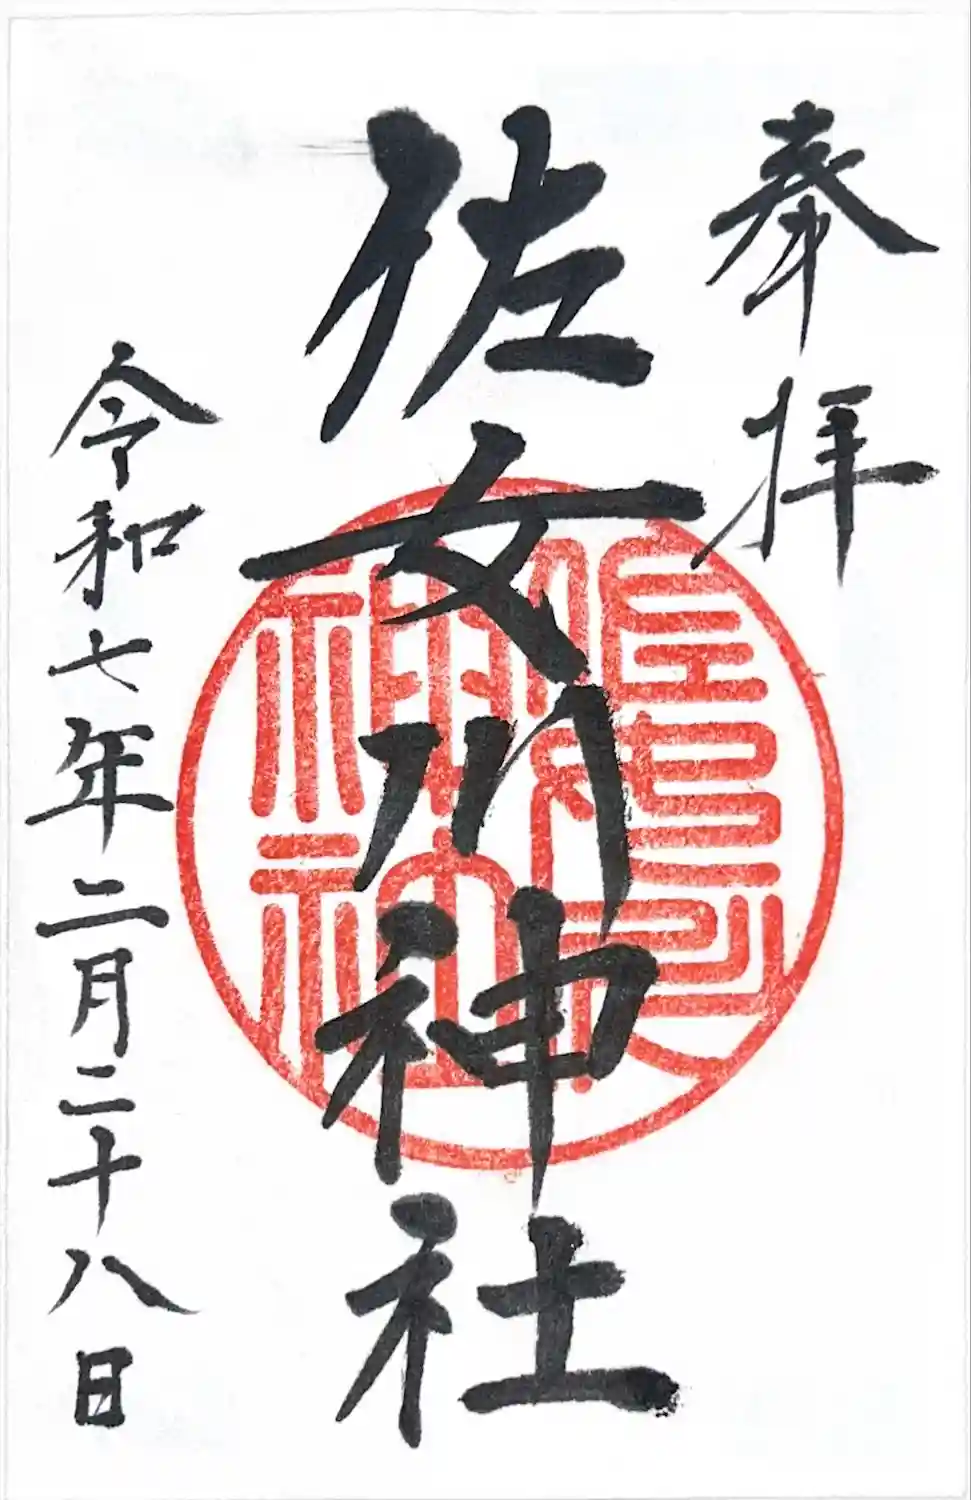 奉拝
佐女川神社
令和七年二月二十八日